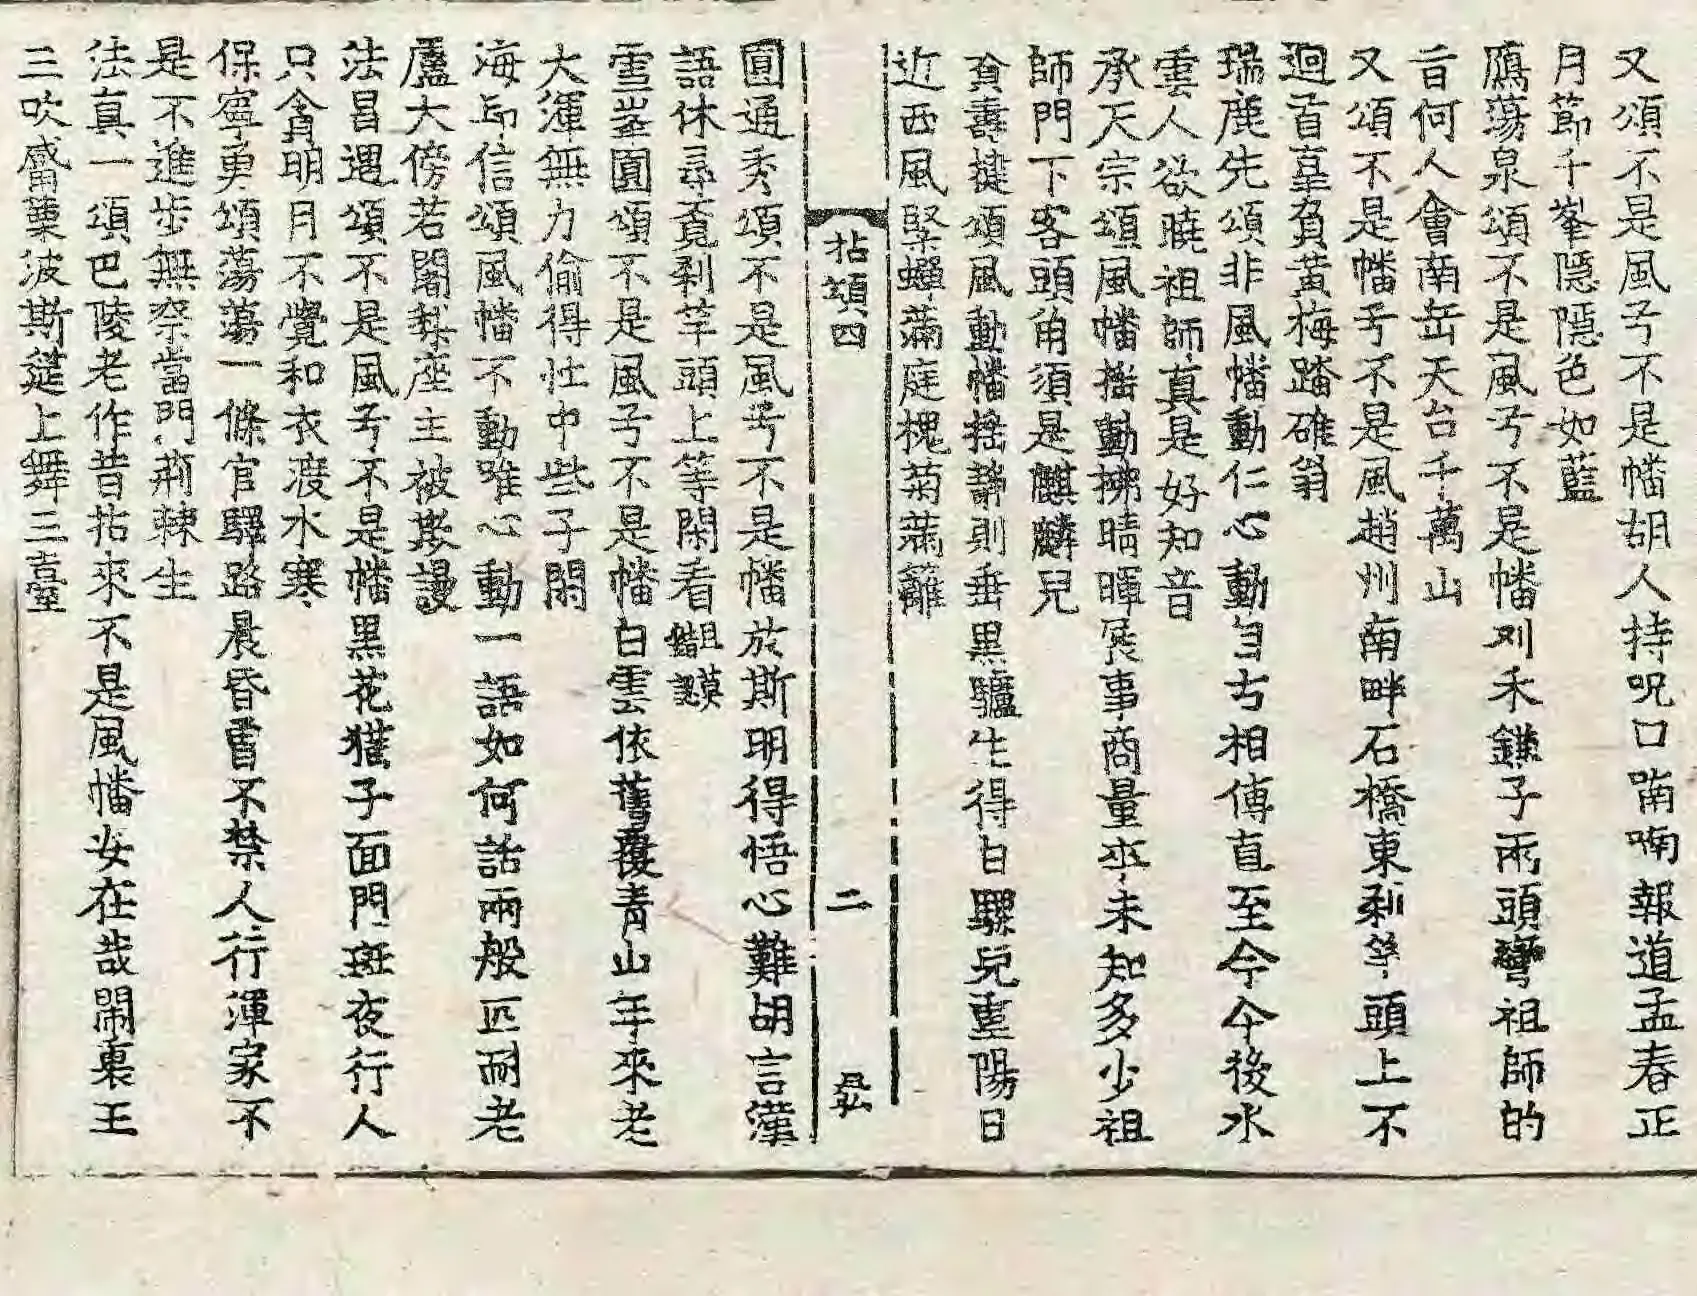 又頌不是風兮不是幡胡人持呪口喃喃報道孟春正
月節千峯隱隱色如藍
鴈蕩泉頌不是風兮不是幡刈禾鎌子兩頭彎祖師的
旨何人會南岳天台千萬山
又頌不是幡兮不是風趙州南畔石橋東刹竿頭上不
迴首辜負黃梅踏碓翁
瑞鹿先頌非風幡動仁心動自古相傳直至今今後水
雲人欲曉祖師眞是好知音
承天宗頌風幡搖動拂晴暉展事商量來未知多少祖
師門下客頭角須是麒麟兒
資壽捷頌風動幡搖静則垂黑驢生得白騾兒重陽日
近西風緊蠟滿庭槐菊滿籬
拈頌四 二 弘
圓通秀頌不是風兮不是幡於斯明得悟心難胡言漢
語休尋覓刹竿頭上等閑看 錯認
雪峯圓頌不是風兮不是幡白雲依舊覆青山年來老
大渾無力偷得忙中些子閑
海印信頌風幡不動唯心動一語如何話兩般叵耐老
盧大傍若闍梨座主被欺謾
法昌遇頌不是風兮不是幡黑花猫子面門斑夜行人
只貪明月不覺和衣渡水寒
保寧勇頌蕩蕩一條官驛路晨昏曾不禁人行渾家不
是不進步無柰當門荊棘生
法眞一頌巴陵老作昔拈來不是風幡安在哉鬧裏王
三吹觱篥波斯筵上舞三臺